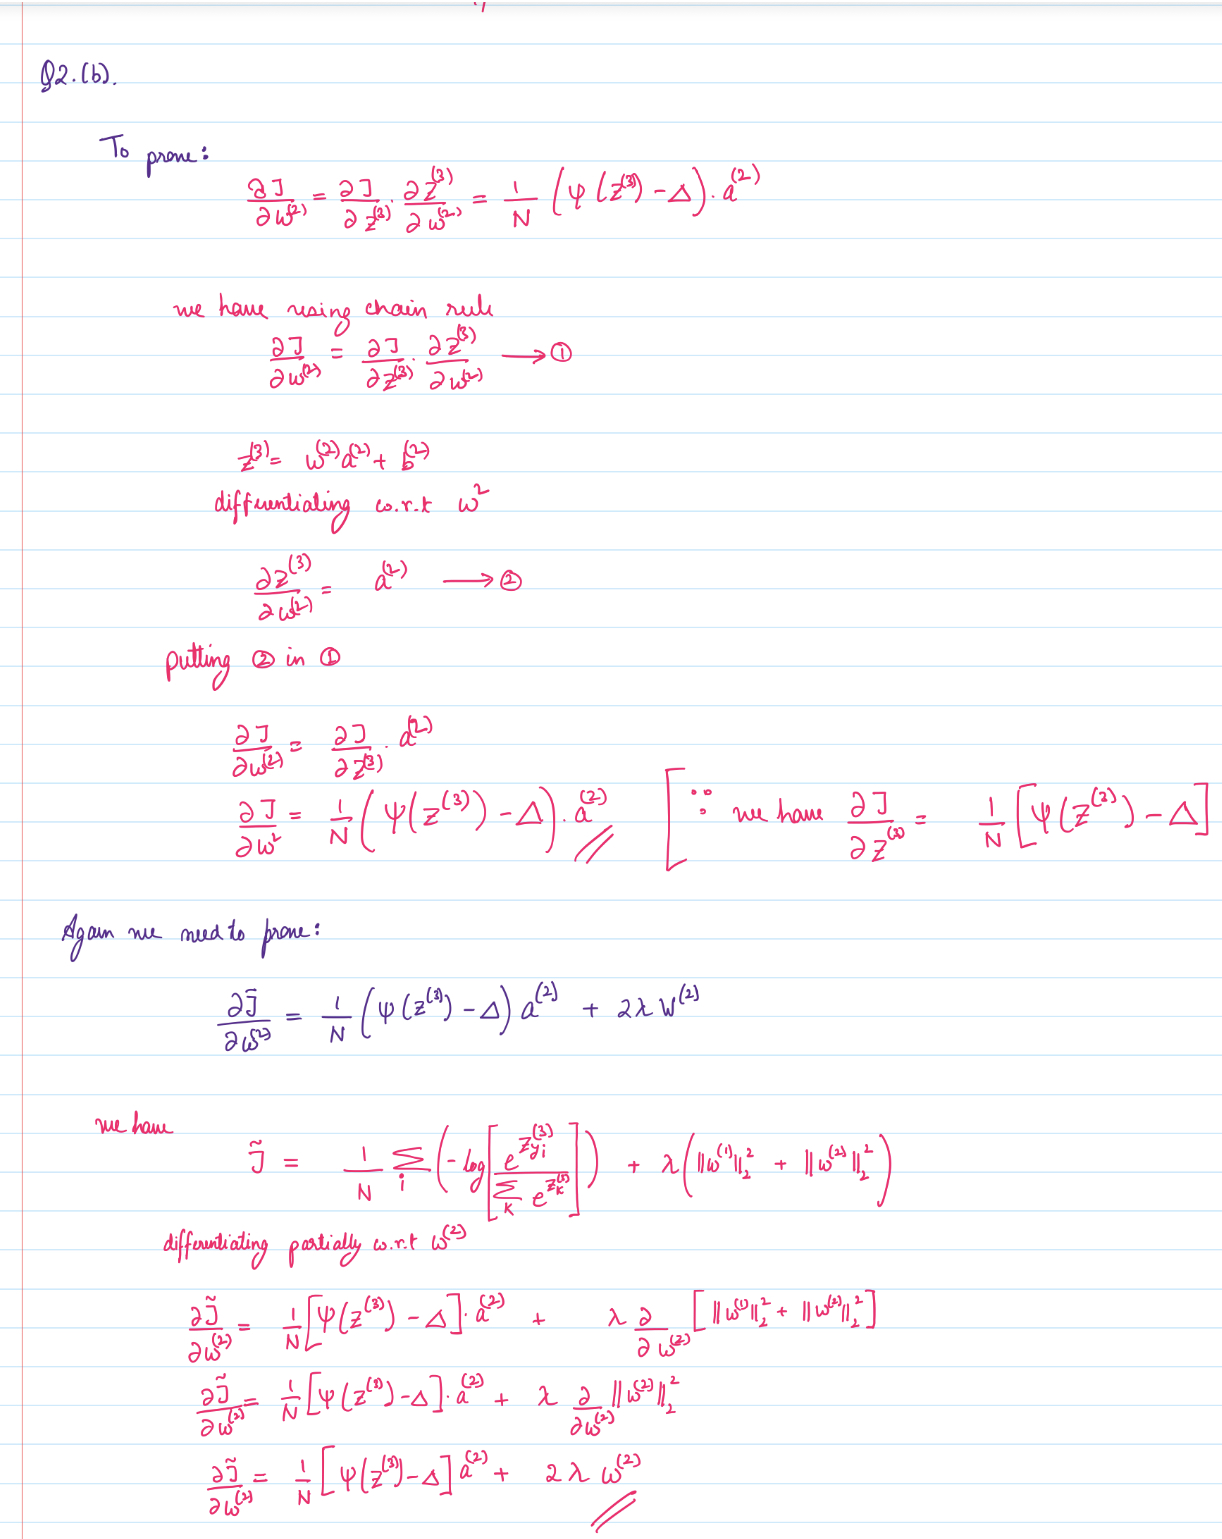 Q2.(b).
To prove:
∂J/∂w^(2) = ∂J/∂z^(3) · ∂z^(3)/∂w^(2) = 1/N (ψ(z^(3)) - Δ) · a^(2)
we have using chain rule
∂J/∂w^(2) = ∂J/∂z^(3) · ∂z^(3)/∂w^(2) ⟶ ①
z^(3) = w^(2) a^(2) + b^(2)
differentiating w.r.t w^2
∂z^(3)/∂w^(2) = a^(2) ⟶ ②
putting ② in ①
∂J/∂w^(2) = ∂J/∂z^(3) · a^(2)
∂J/∂w^2 = 1/N (ψ(z^(3)) - Δ) · a^(2) [∵ we have ∂J/∂z^(3) = 1/N [ψ(z^(3)) - Δ]
Again we need to prove:
∂J̃/∂w^(2) = 1/N (ψ(z^(3)) - Δ) a^(2) + 2λ W^(2)
we have
J̃ = 1/N ∑_i (-log [e^(z_yi^(3)) / ∑_k e^(z_k^(3))]) + λ (||w^(1)||_2^2 + ||w^(2)||_2^2)
differentiating partially w.r.t w^(2)
∂J̃/∂w^(2) = 1/N [ψ(z^(3)) - Δ] · a^(2) + λ ∂/∂w^(2) [||w^(1)||_2^2 + ||w^(2)||_2^2]
∂J̃/∂w^(2) = 1/N [ψ(z^(3)) - Δ] · a^(2) + λ ∂/∂w^(2) ||w^(2)||_2^2
∂J̃/∂w^(2) = 1/N [ψ(z^(3)) - Δ] a^(2) + 2λ w^(2)